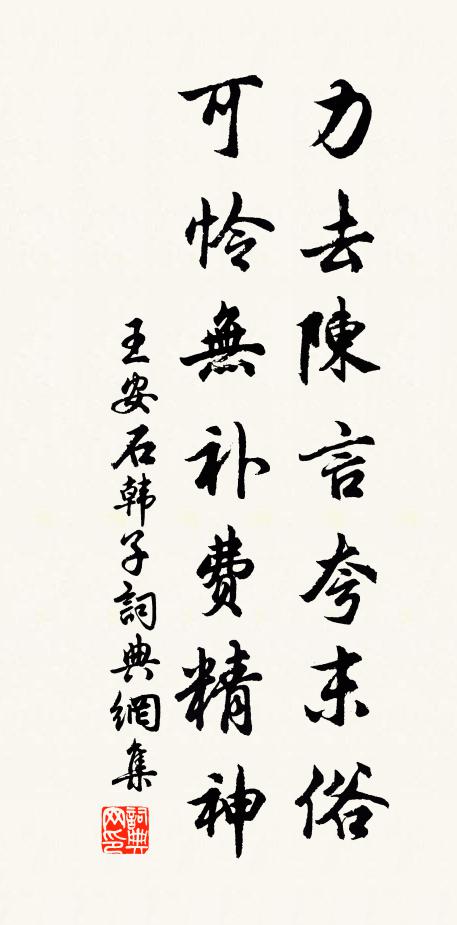 力去陳言夸末俗
可怜無补费精神
王安石韩子詞典網集
詞典网印